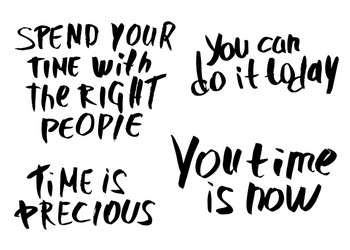 SPEND YOUR
TINE with
the RIGHT
PEOPIE
You can
do it today
TIME IS
PRECIOUS
You time
is now